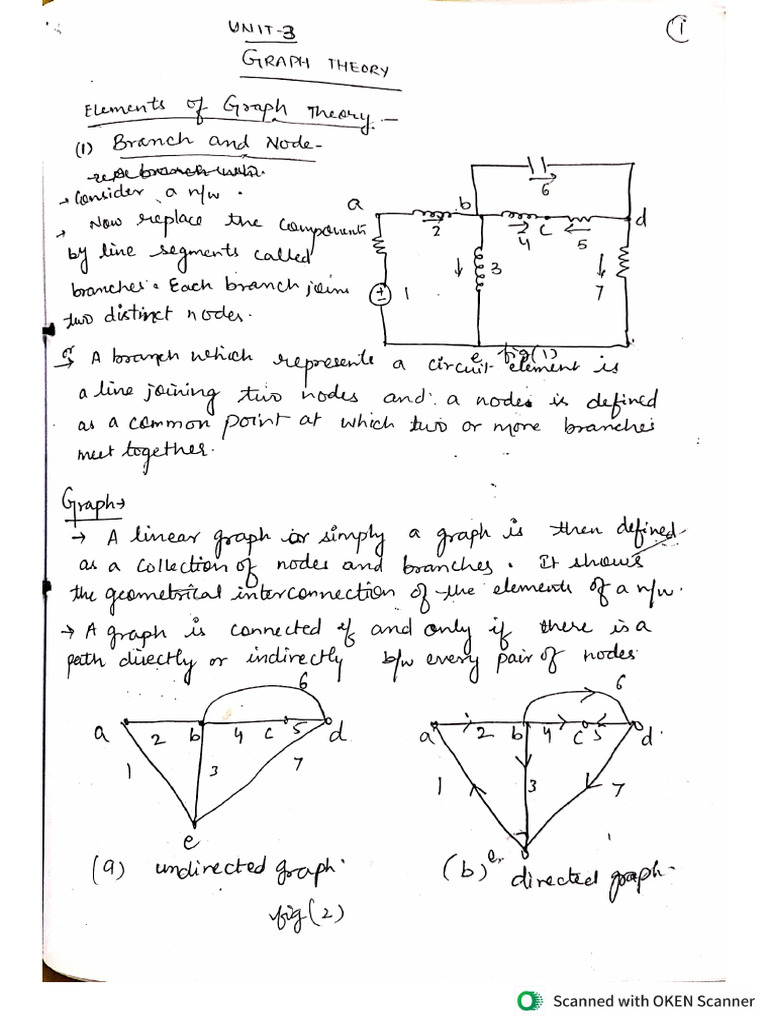 UNIT-3
1
GRAPH THEORY
Elements of Graph Theory:-
(1) Branch and Node-
→ Consider a n/w.
→ Now replace the components
by line segments called
branches. Each branch joins
two distinct nodes.
a b c d e
1 2 3 4 5 6 7
fig(1)
or
→ A branch which represents a circuit element is
a line joining two nodes and a node is defined
as a common point at which two or more branches
meet together.
Graph→
→ A linear graph or simply a graph is then defined
as a collection of nodes and branches. It shows
the geometrical interconnection of the elements of a n/w.
→ A graph is connected if and only if there is a
path directly or indirectly b/w every pair of nodes
a 2 b 4 c 5 d
6
1 3 7
e
(a) undirected graph.
a 2 b 4 c 5 d
6
1 3 7
e
(b) directed graph.
fig(2)
Scanned with OKEN Scanner